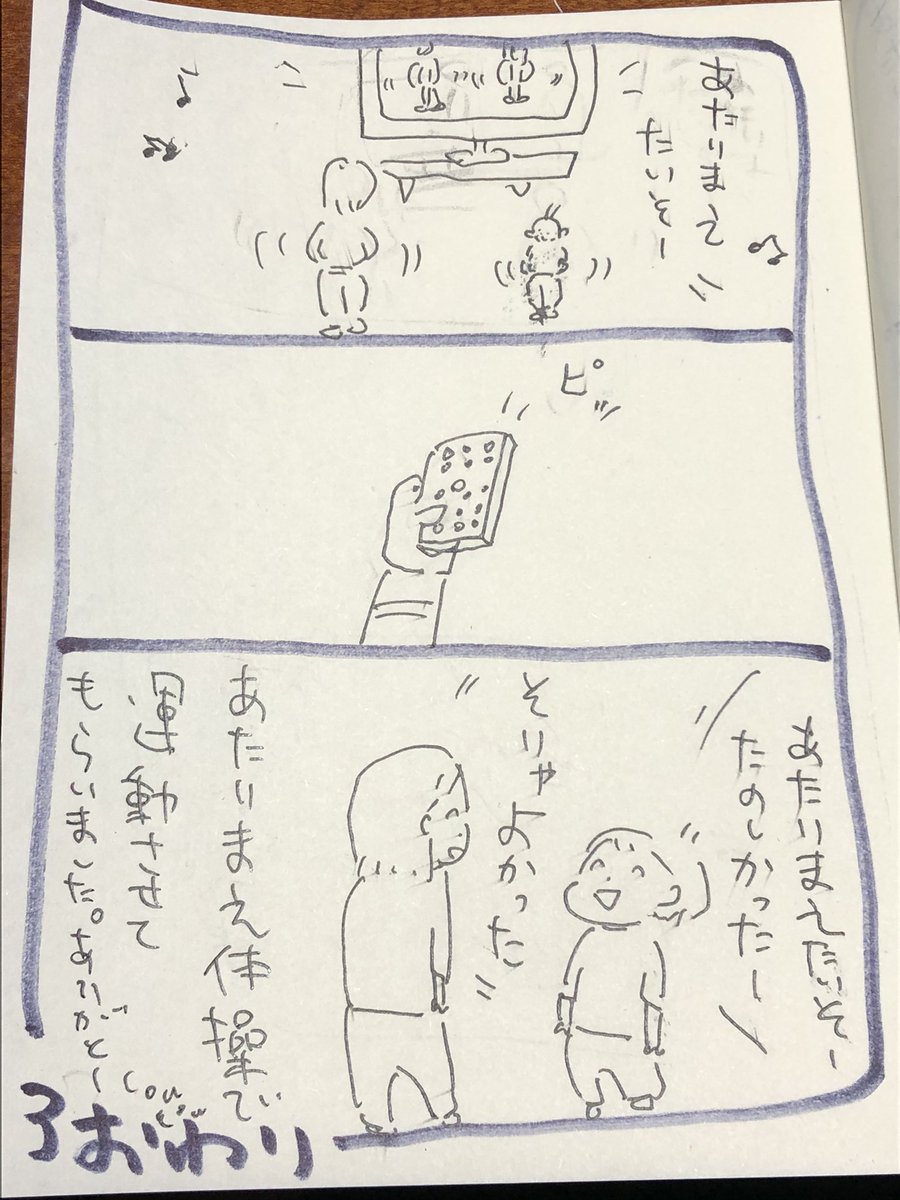 あたりまえ
たいそー
ピッ
あたりまえたいそー
たのしかったー
そりゃよかった
あたりまえ体操で
運動させて
もらいました。ありがとー
おわり
3